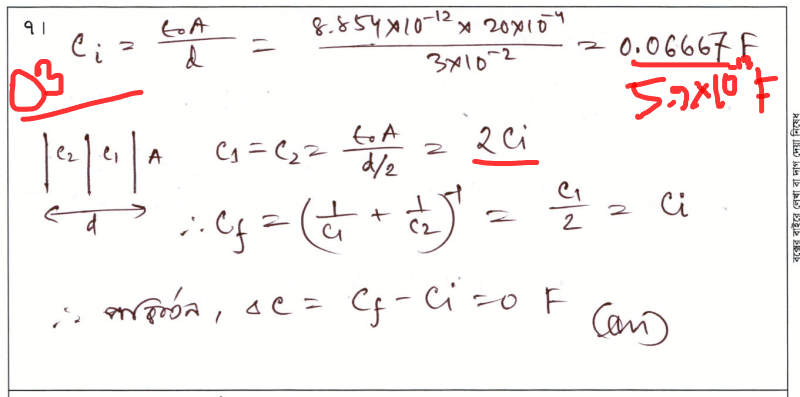 91
C_i = ε₀A/d = (8.854×10⁻¹² × 20×10⁻⁴)/(3×10⁻²) = 0.06667 F
5.9×10⁻¹³ F
|C₂|C₁| A C₁ = C₂ = ε₀A/(d/2) = 2Ci
d
∴ C_f = (1/C₁ + 1/C₂)⁻¹ = C₁/2 = Ci
∴ পরিবর্তন, ΔC = C_f - Ci = 0 F (Ans)
বক্সের বাইরে লেখা বা দাগ দেয়া নিষেধ